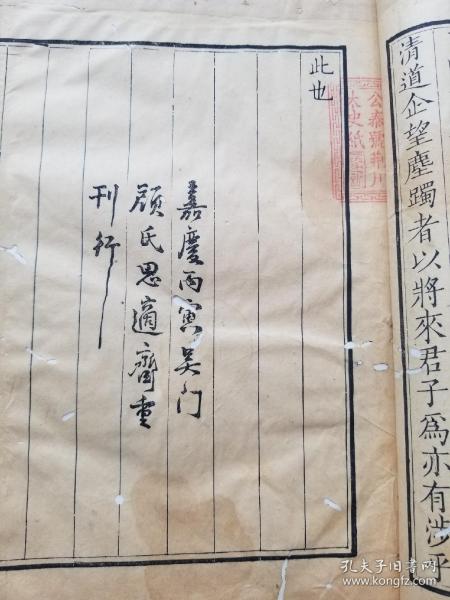 清道企望塵躅者以將來君子爲亦有涉乎
此也
嘉慶丙寅吴门
顾氏思適齋重
刊行
公泰號荆川
太史紙
孔夫子旧书网
www.kongfz.com